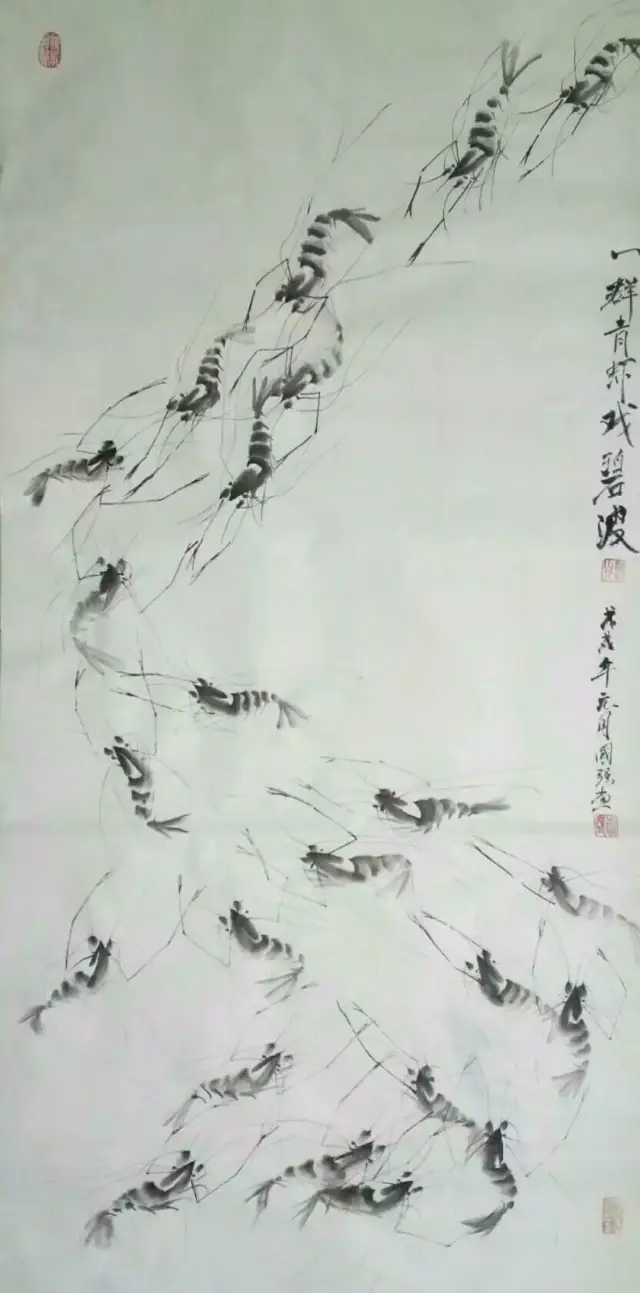 一群青虾戏碧波
戊戌年元月国强画